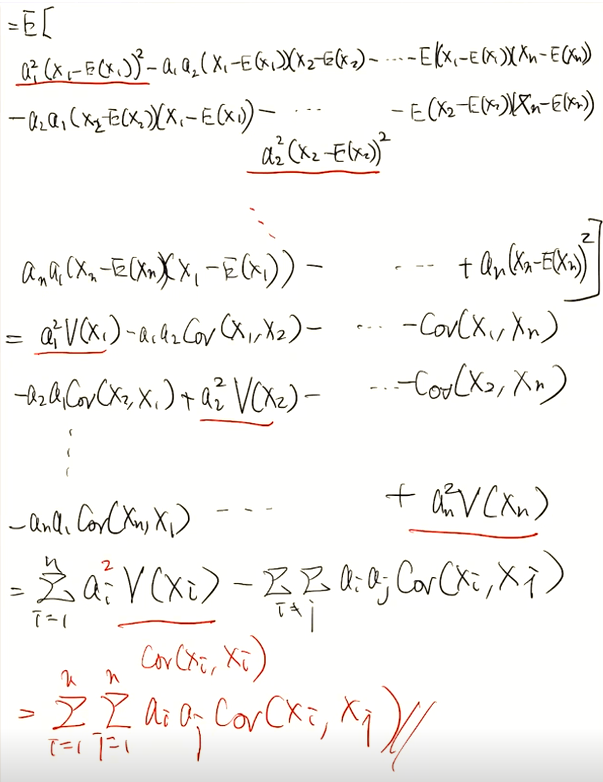 =E[
a₁²(X₁-E(X₁))²-a₁a₂(X₁-E(X₁))(X₂-E(X₂)- ‥‥-E(X₁-E(X₁)(Xn-E(Xn))
-a₂a₁(X₂-E(X₂)(X₁-E(X₁)- ‥‥ -E(X₂-E(X₂)(Xn-E(Xn))
a₂²(X₂-E(X₂))²
ana₁(Xn-E(Xn)(X₁-E(X₁))- ‥‥ +an(Xn-E(Xn))²]
= a₁²V(X₁)-a₁a₂Cov(X₁,X₂)- ‥‥ -Cov(X₁,Xn)
-a₂a₁Cov(X₂,X₁)+a₂²V(X₂)- ‥‥-Cov(X₂,Xn)
-ana₁Cov(Xn,X₁) ---- + an²V(Xn)
= Σ_{i=1}^{n} ai² V(Xi) - ΣΣ_{i≠j} aiajCov(Xi,Xj)
Cov(Xi,Xi)
= Σ_{i=1}^{n} Σ_{j=1}^{n} aiaj Cov(Xi,Xj)//